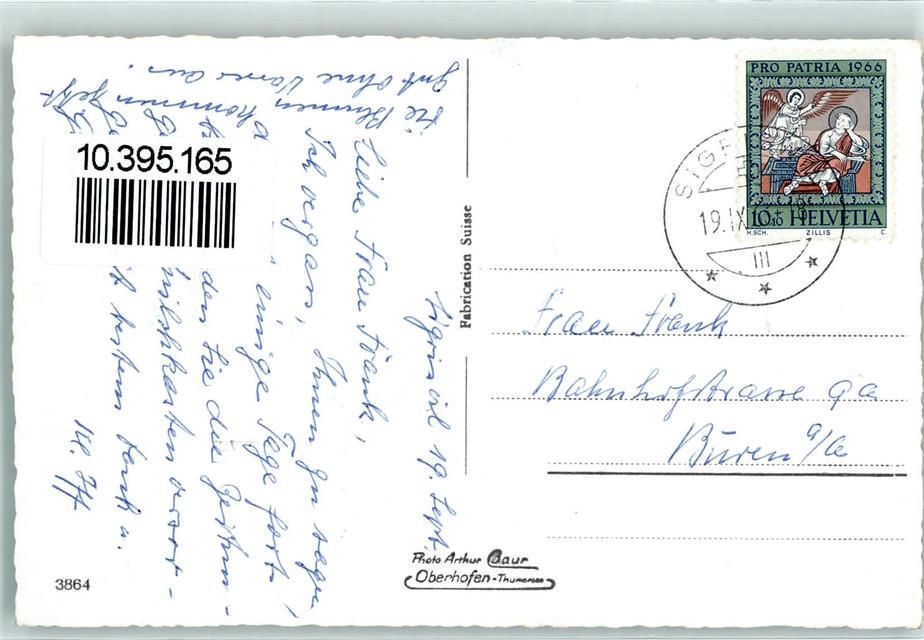 10.395.165
PRO PATRIA 1966
10+10 HELVETIA
H.SCH. ZILLIS C.
SIG
19.IX
III
Fabrication Suisse
Sigriswil 19. Sept.
Liebe Frau Frank,
Ich vergass, Ihnen zu sagen,
einige Tage fort
den Sie die Zeitun-
kasten versor-
bestem Dank u.
Die Blumen kommen jetzt
gut ohne Wasser aus.
Frau Frank
Bahnhofstrasse 9a
Büren a/A
Photo Arthur Baur
Oberhofen-Thunersee
3864